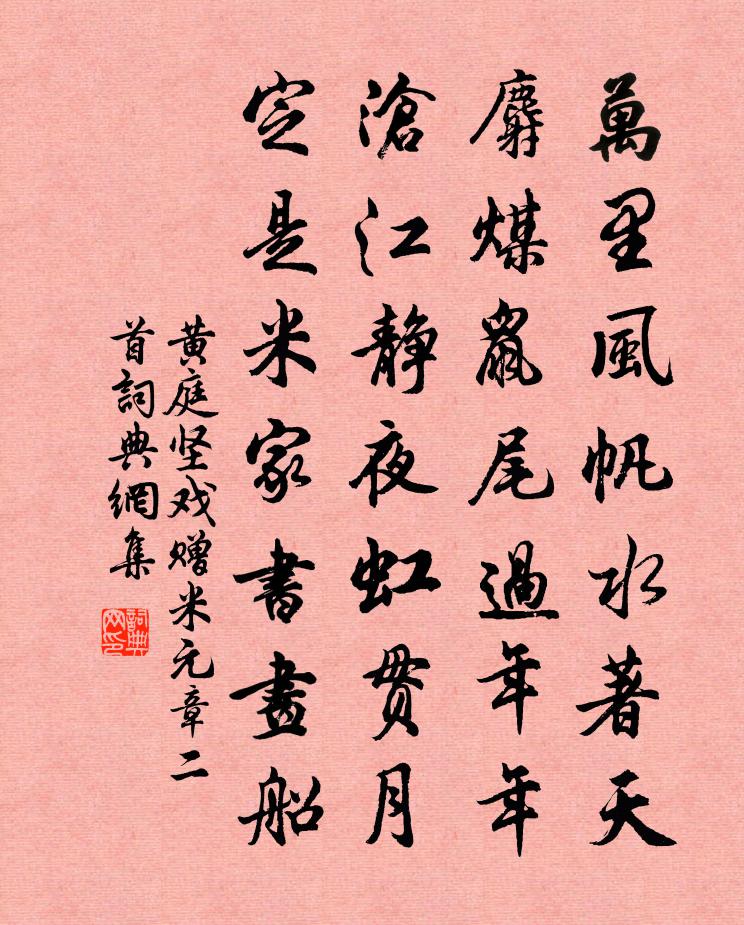 萬里風帆水著天
麝煤鼠尾過年年
滄江静夜虹貫月
定是米家書畫船
黄庭坚戏赠米元章二
首詞典網集
詞典网印